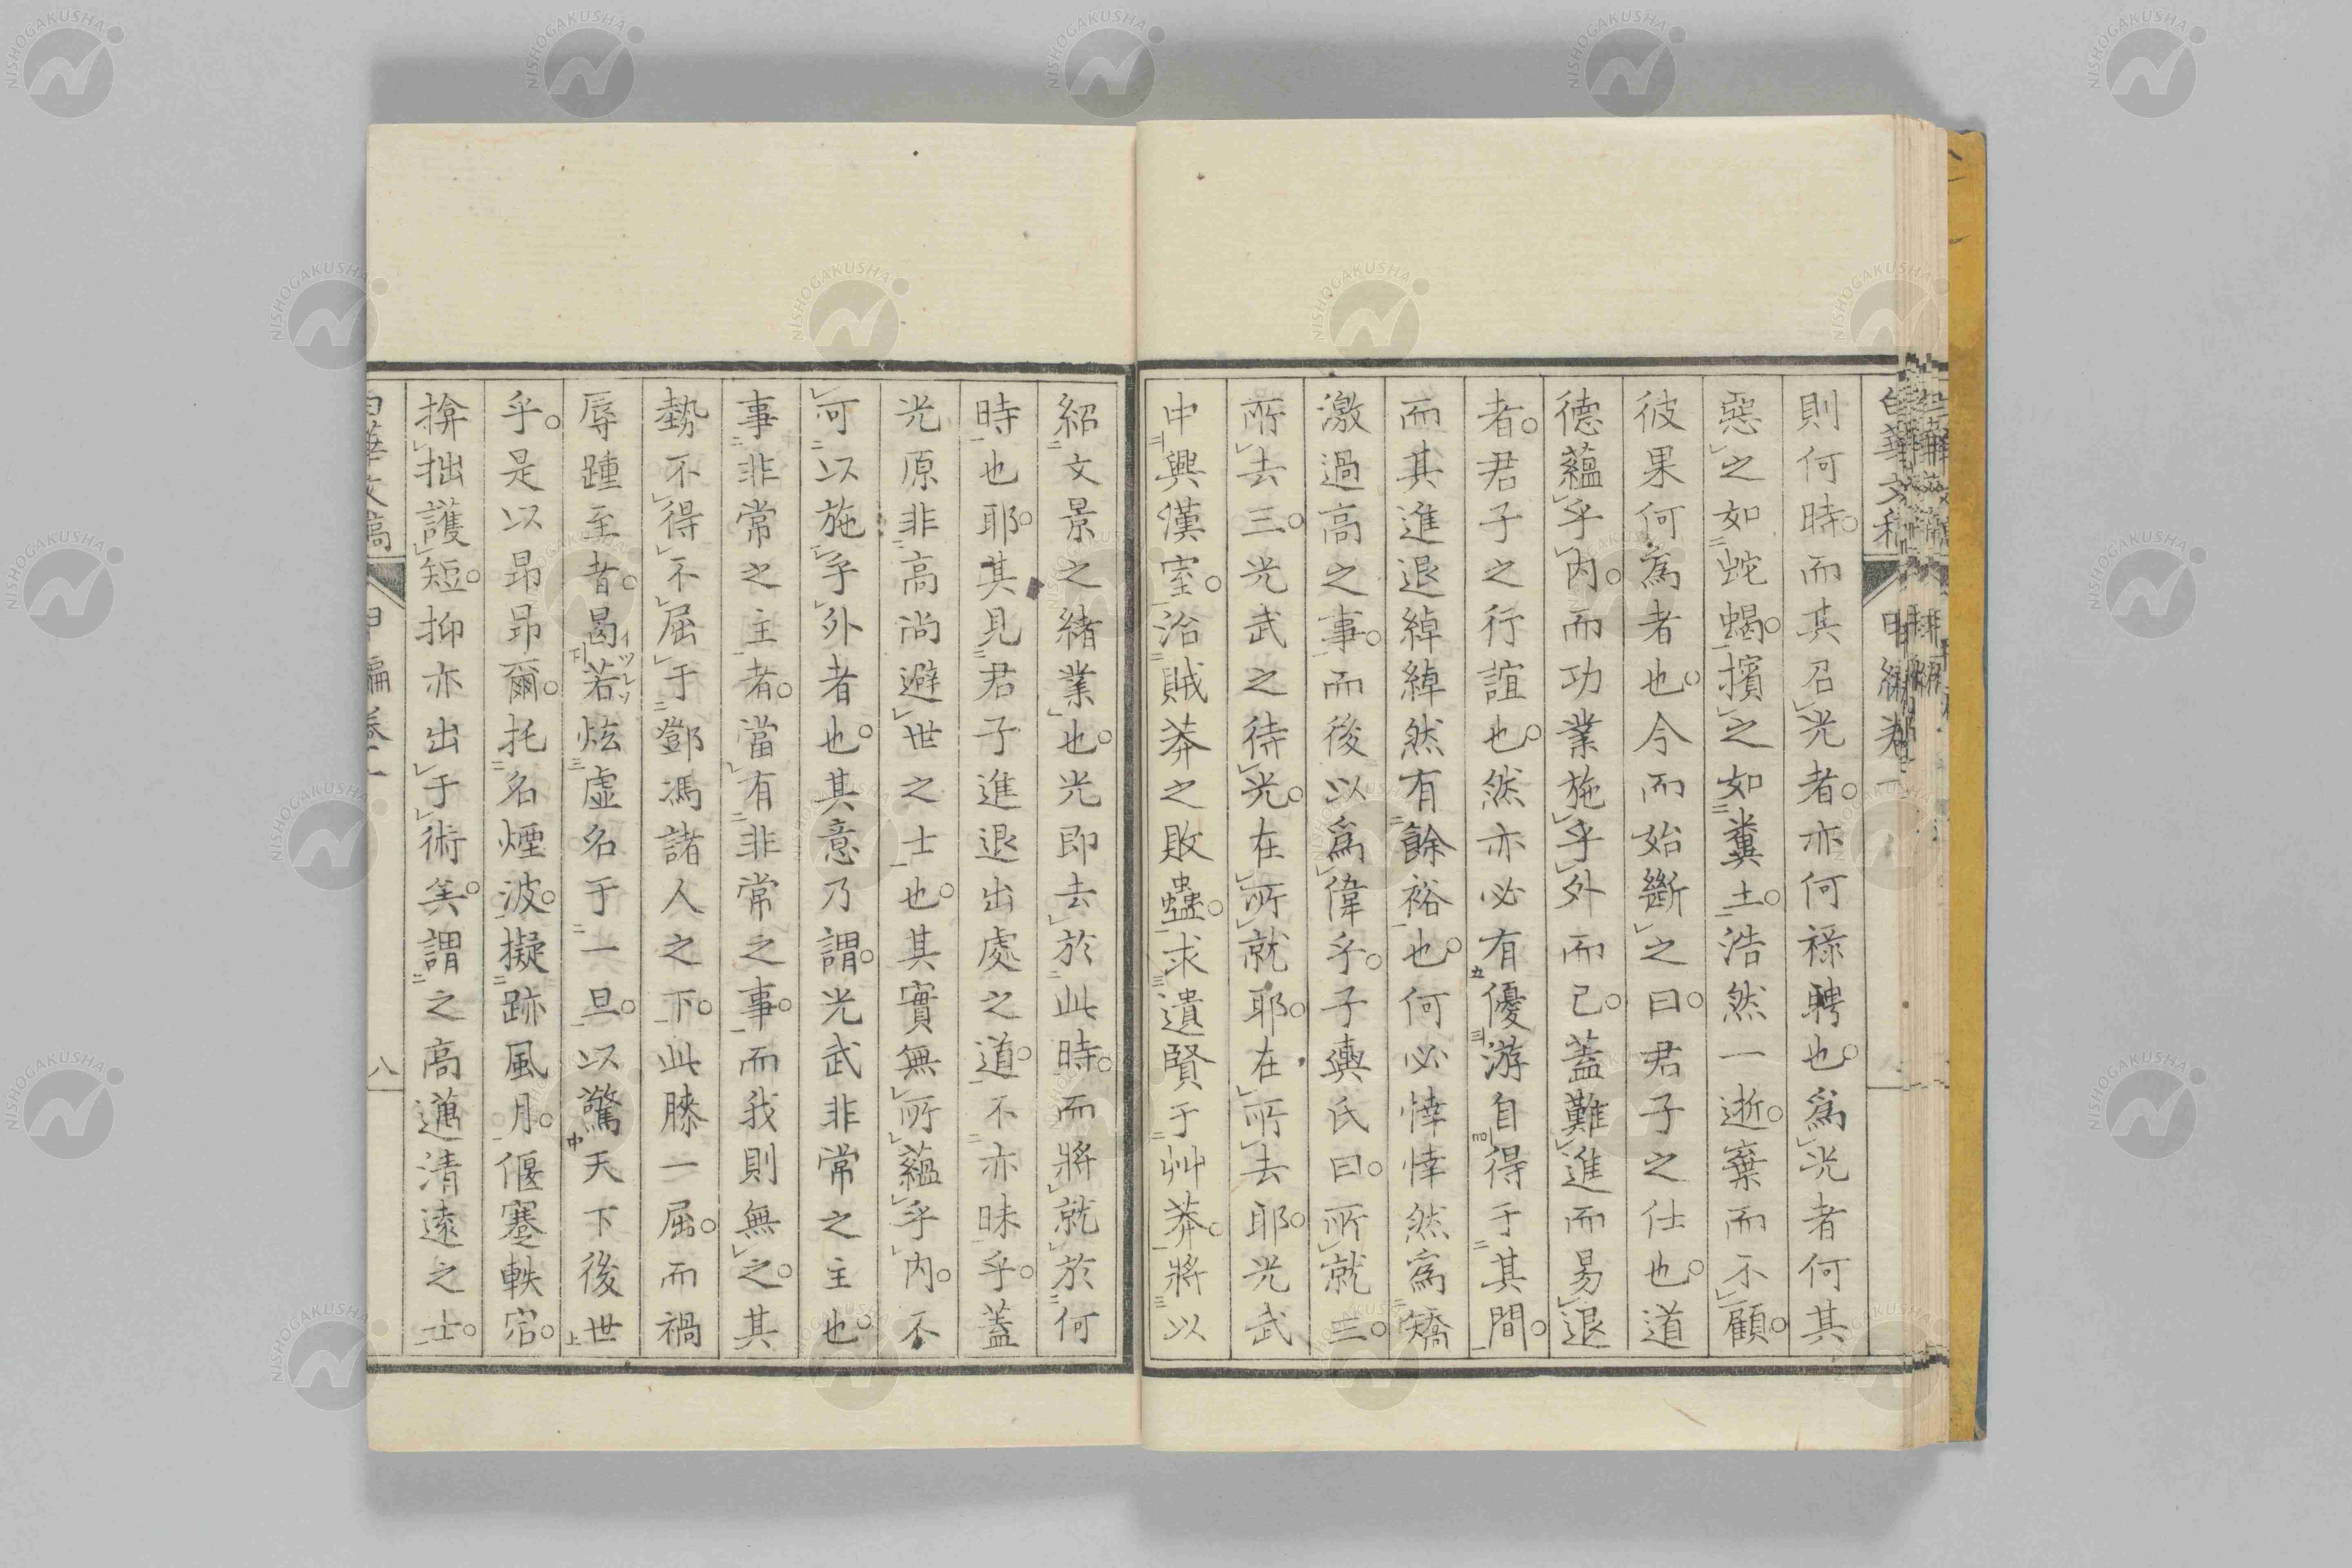 則何時。而其召光者。亦何祿聘也。爲光者何其
惡之如蛇蝎。擯之如糞土。浩然一逝。棄而不顧。
彼果何爲者也。今而始斷之曰。君子之仕也。道
德蘊乎內。而功業施乎外而已。蓋難進而易退
者。君子之行誼也。然亦必有優游自得于其間。
而其進退綽綽然有餘裕也。何必悻悻然爲矯
激過高之事。而後以爲偉乎。子輿氏曰。所就三。
所去三。光武之待光。在所就耶。在所去耶。光武
中興漢室。浴賊莽之敗蠱。求遺賢于艸莽。將以
紹文景之緒業也。光即去於此時。而將就於何
時也耶。其見君子進退出處之道。不亦昧乎。蓋
光原非高尚避世之士也。其實無所蘊乎內。不
可以施乎外者也。其意乃謂。光武非常之主也。
事非常之主者。當有非常之事。而我則無之。其
勢不得不屈于鄧馮諸人之下。此膝一屈。而禍
辱踵至者。曷若炫虛名于一旦。以驚天下後世
乎。是以昂昂爾。托名煙波。擬跡風月。偃蹇軼宕。
揜拙護短。抑亦出于術矣。謂之高邁清遠之士。
白華文稿 甲編卷一 八
NISHOGAKUSHA